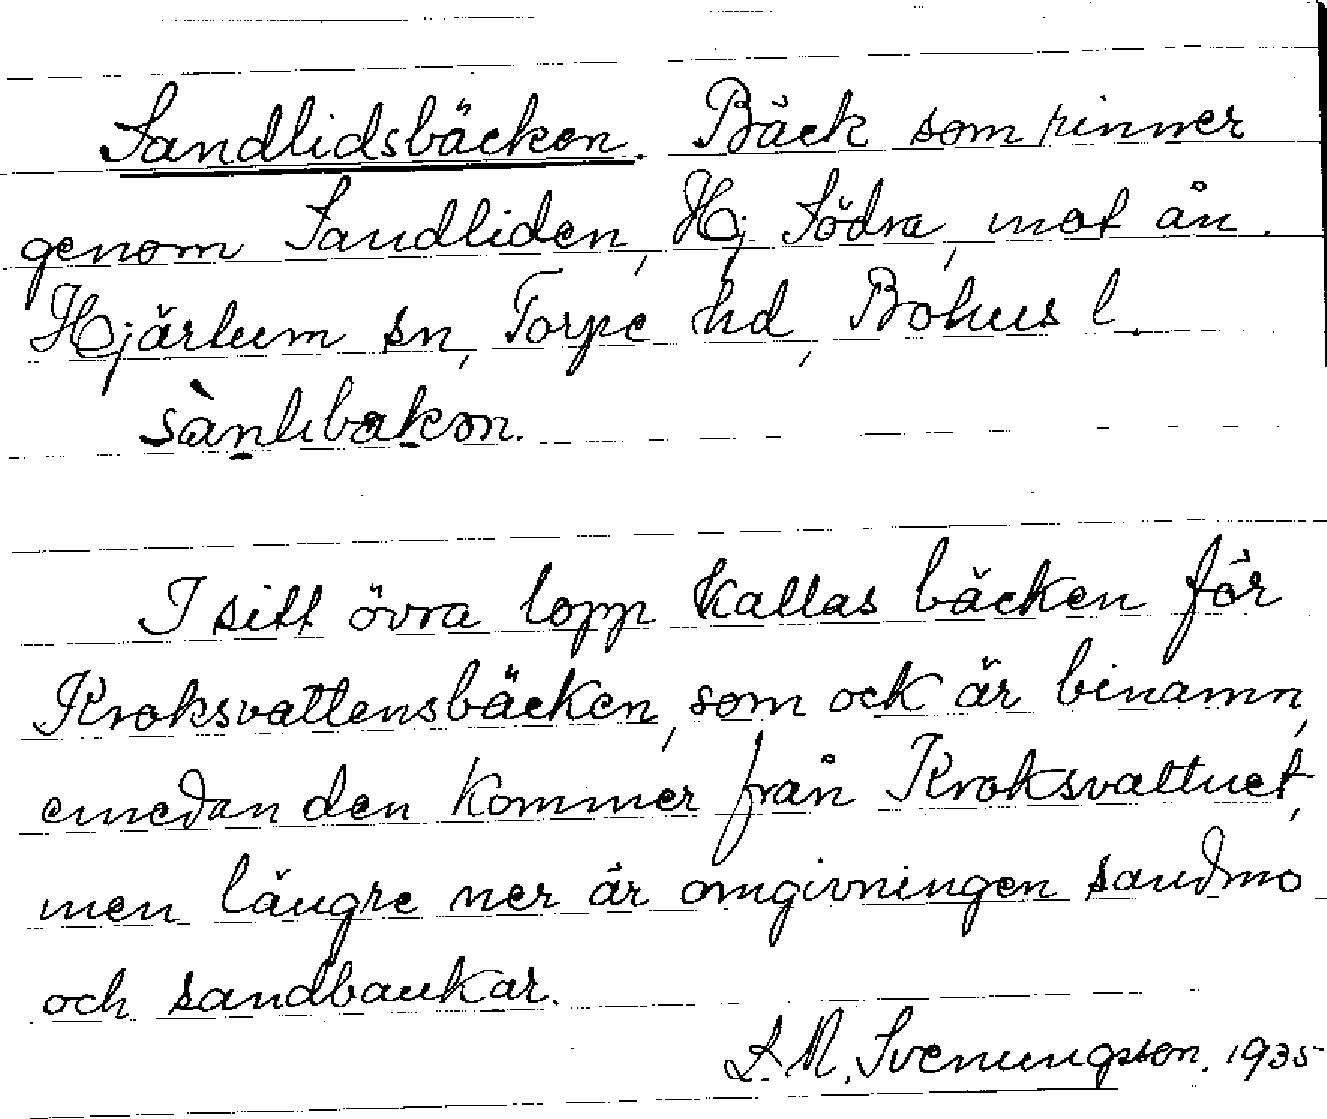 Sandlidsbäcken. Bäck som rinner
genom Sandliden, Hj. Södra, mot ån.
Hjärtum sn, Torpe hd, Bohus l.
I sitt övra lopp kallas bäcken för
Kroksvattensbäcken, som ock är binamn,
emedan den kommer från Kroksvattnet,
men längre ner är omgivningen sandmo
och sandbankar.
L. M. Svenungsson. 1935